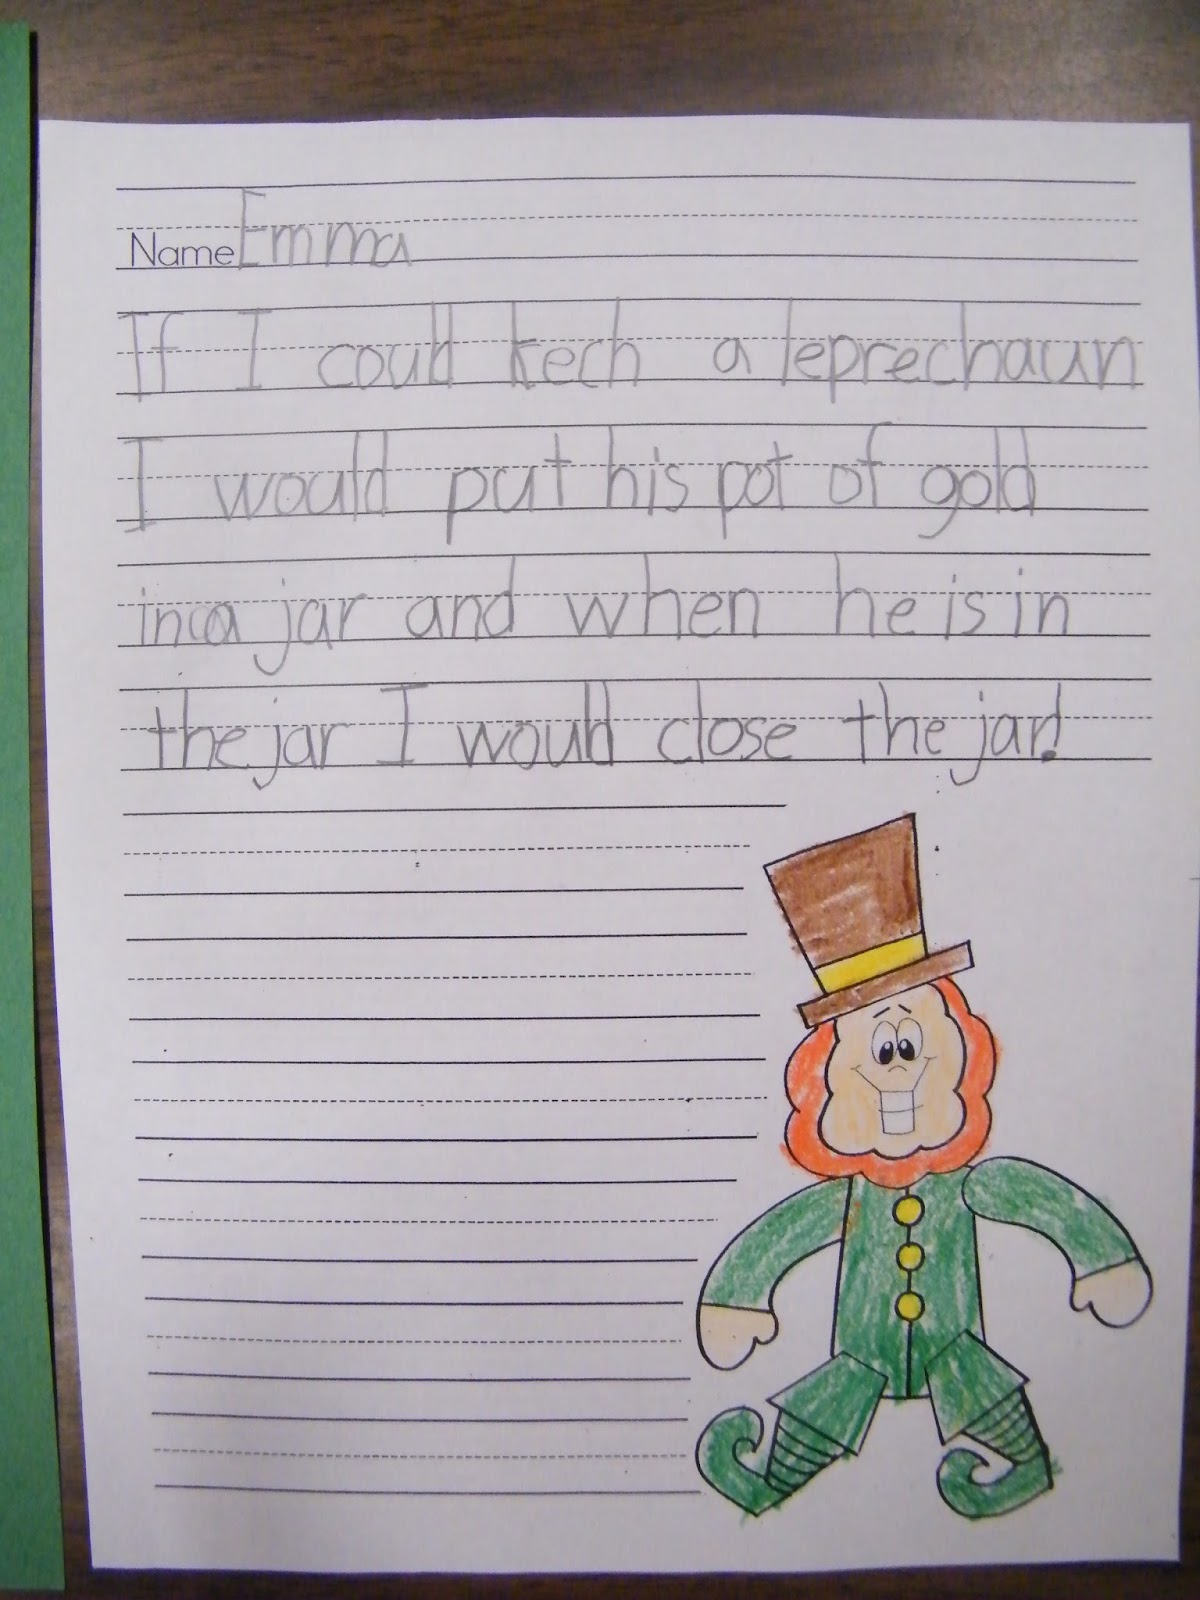 Name Emma
If I could kech a leprechaun
I would put his pot of gold
in a jar and when he is in
the jar I would close the jar!